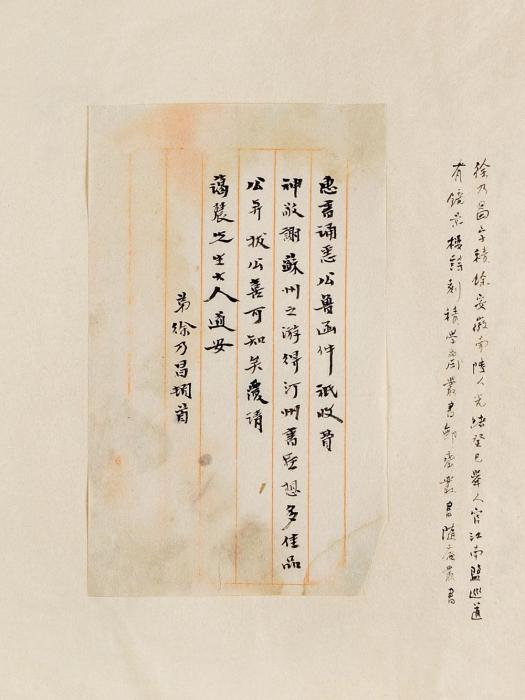 徐乃昌字積餘安徽南陵人光緒癸巳舉人官江南鹽巡道
有鏡景樓詩刻積學齋叢書鄦齋叢書隨庵叢書
惠書誦悉公魯函件祇收費
神敬謝蘇州之游得汀州書聯想多佳品
公弄拔公喜可知矣覆請
藹農先生大人道安
弟徐乃昌頓首